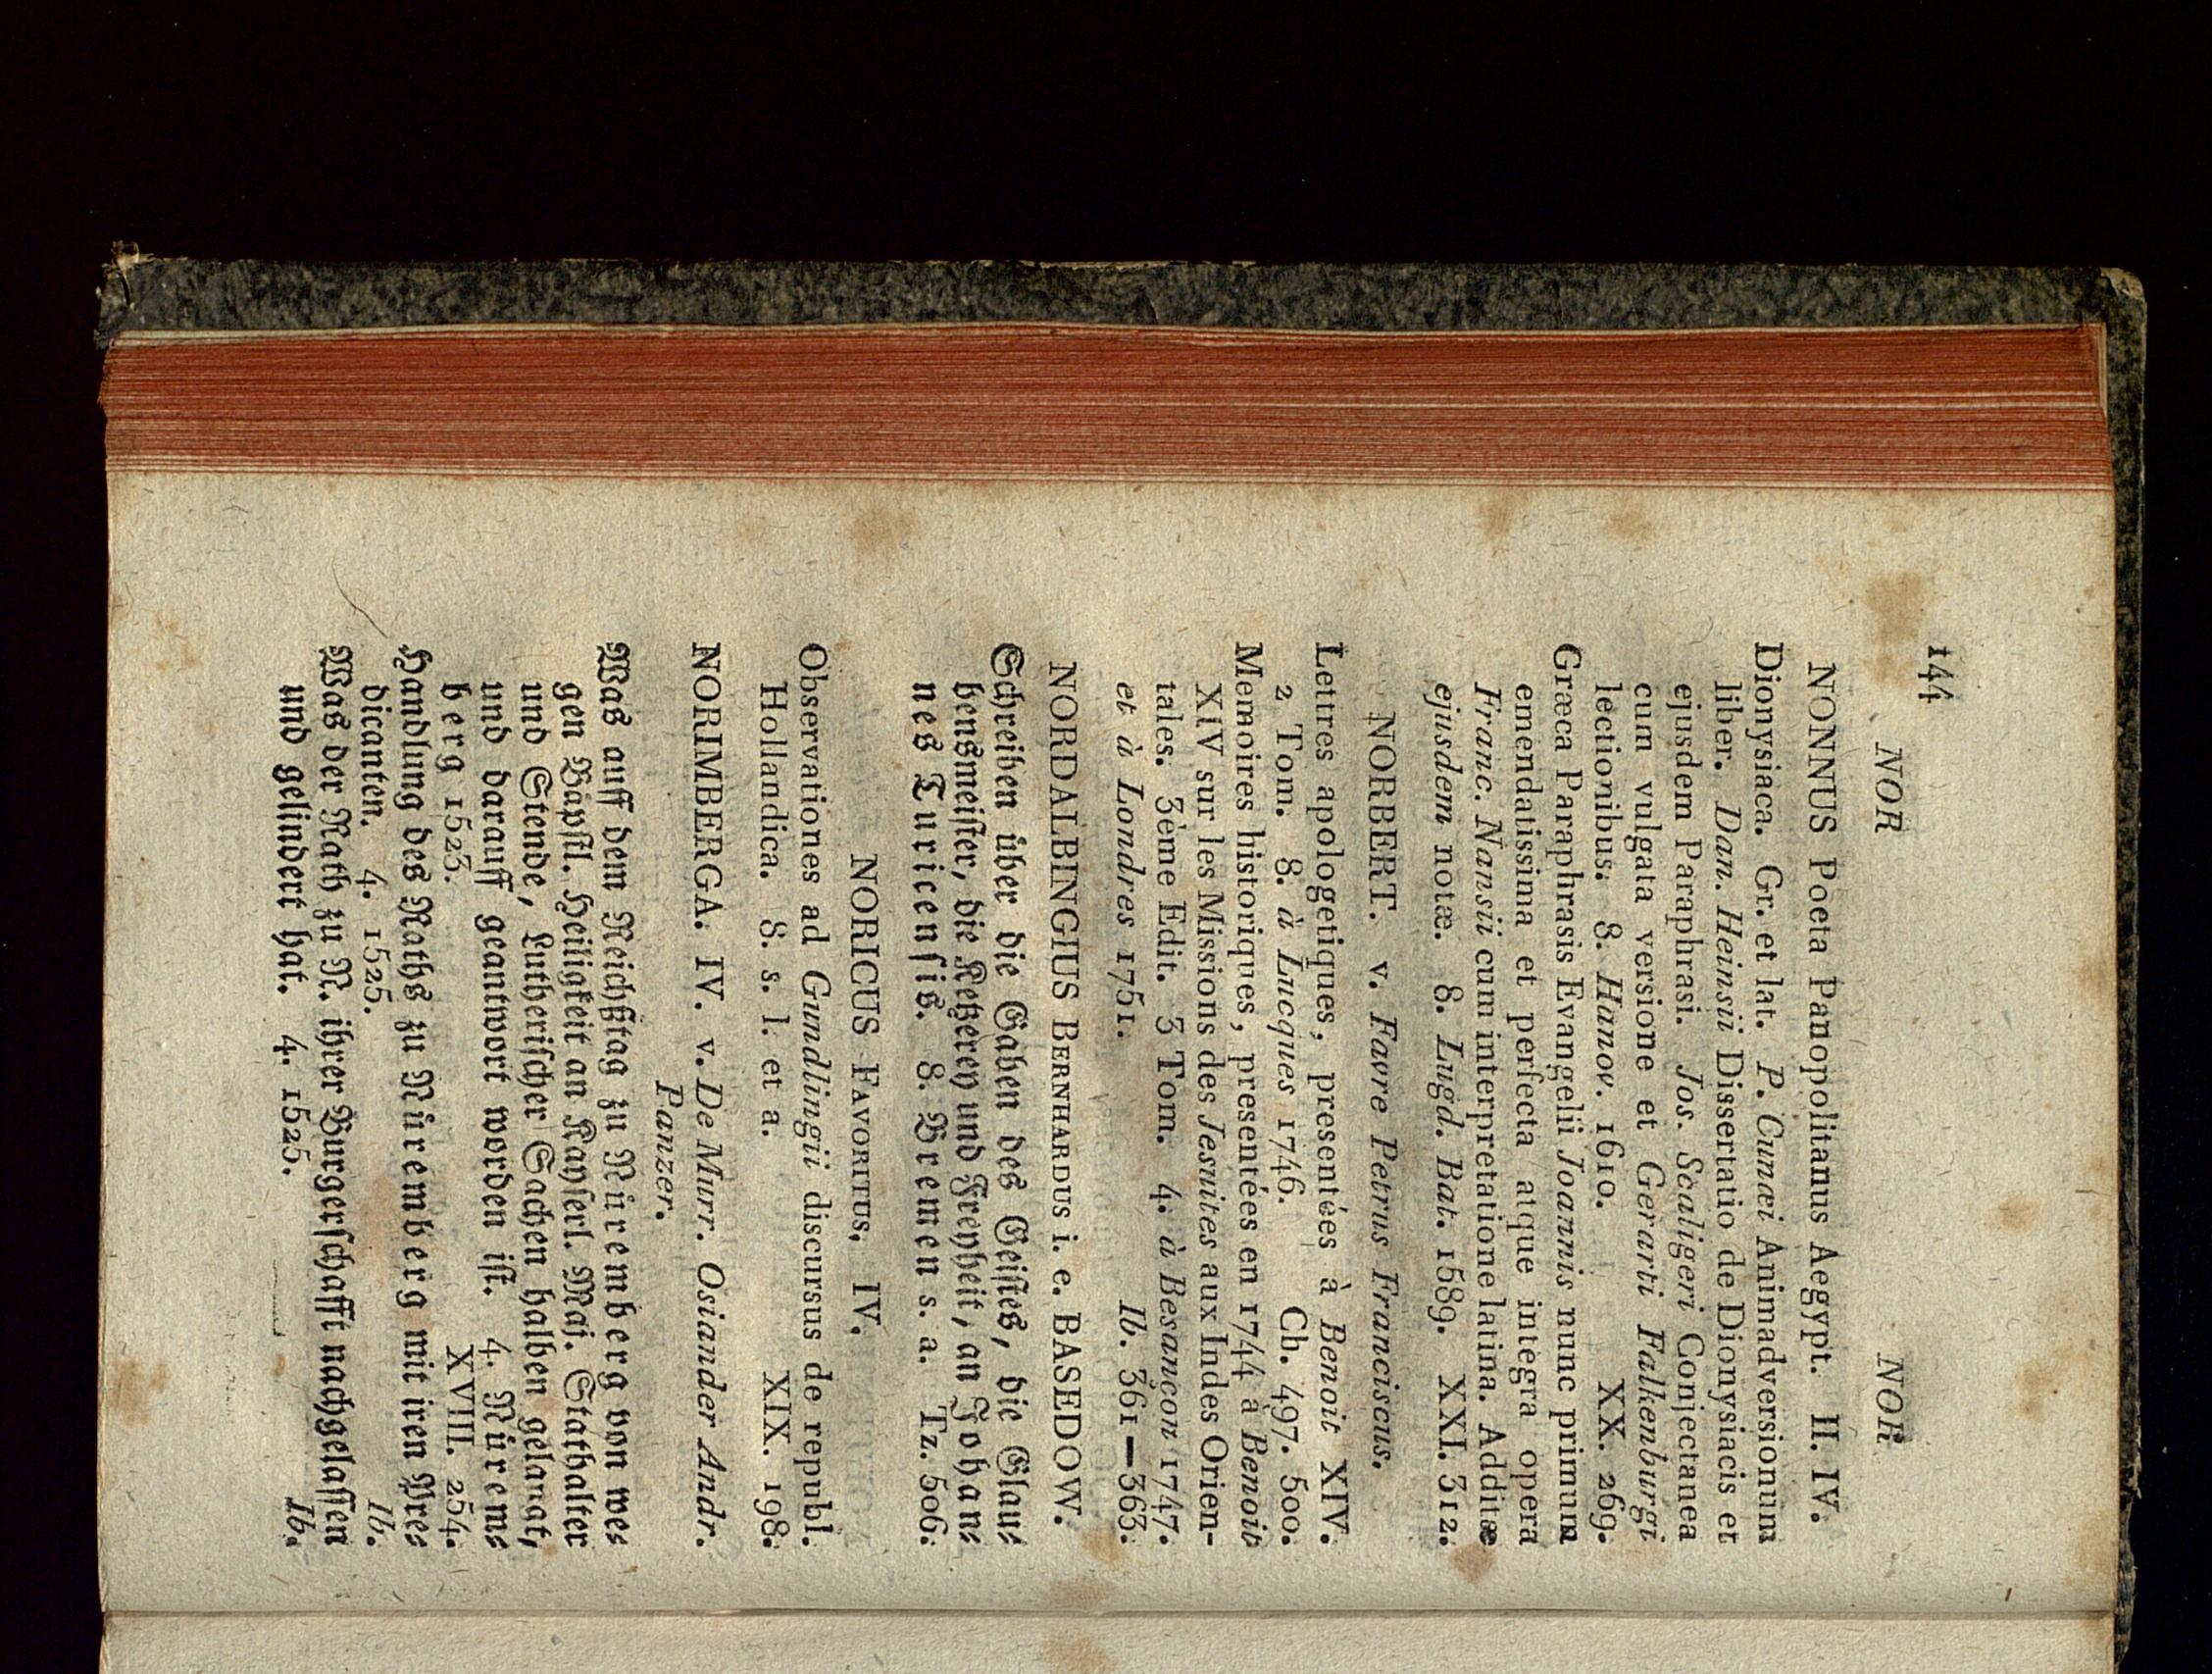 144
NOR NOR
NONNUS Poeta Panopolitanus Aegypt. II. IV.
Dionysiaca. Gr. et lat. P. Cunæi Animadversionum
liber. Dan. Heinsii Dissertatio de Dionysiacis et
ejusdem Paraphrasi. Jos. Scaligeri Conjectanea
cum vulgata versione et Gerarti Falkenburgi
lectionibus. 8. Hanov. 1610. XX. 269.
Græca Paraphrasis Evangelii Joannis nunc primum
emendatissima et perfecta atque integra opera
Franc. Nansii cum interpretatione latina. Additæ
ejusdem notæ. 8. Lugd. Bat. 1589. XXI. 312.
NORBERT. v. Favre Petrus Franciscus.
Lettres apologetiques, presentées à Benoit XIV.
2 Tom. 8. à Lucques 1746. Ch. 497. 500.
Memoires historiques, presentées en 1744 à Benoit
XIV sur les Missions des Jesuites aux Indes Orien-
tales. 3ème Edit. 3 Tom. 4. à Besançon 1747.
et à Londres 1751. Ib. 361—363.
NORDALBINGIUS BERNHARDUS i. e. BASEDOW.
Schreiben über die Gaben des Geistes, die Glau-
bensmeister, die Ketzerey und Freyheit, an Johan-
nes Turicensis. 8. Bremen s. a. Tz. 506.
NORICUS FAVORITUS. IV.
Observationes ad Gundlingii discursus de republ.
Hollandica. 8. s. l. et a. XIX. 198.
NORIMBERGA. IV. v. De Murr. Osiander Andr.
Panzer.
Was auff dem Reichßtag zu Nüremberg von we-
gen Bäpstl. Heiligkeit an Kayserl. Maj. Stathalter
und Stende, Lutherischer Sachen halben gelangt,
und darauff geantwort worden ist. 4. Nürem-
berg 1523. XVIII. 254.
Handlung des Raths zu Nüremberg mit iren Pre-
dicanten. 4. 1525. Ib.
Was der Rath zu N. ihrer Burgerschafft nachgelassen
und gelindert hat. 4. 1525. Ib.